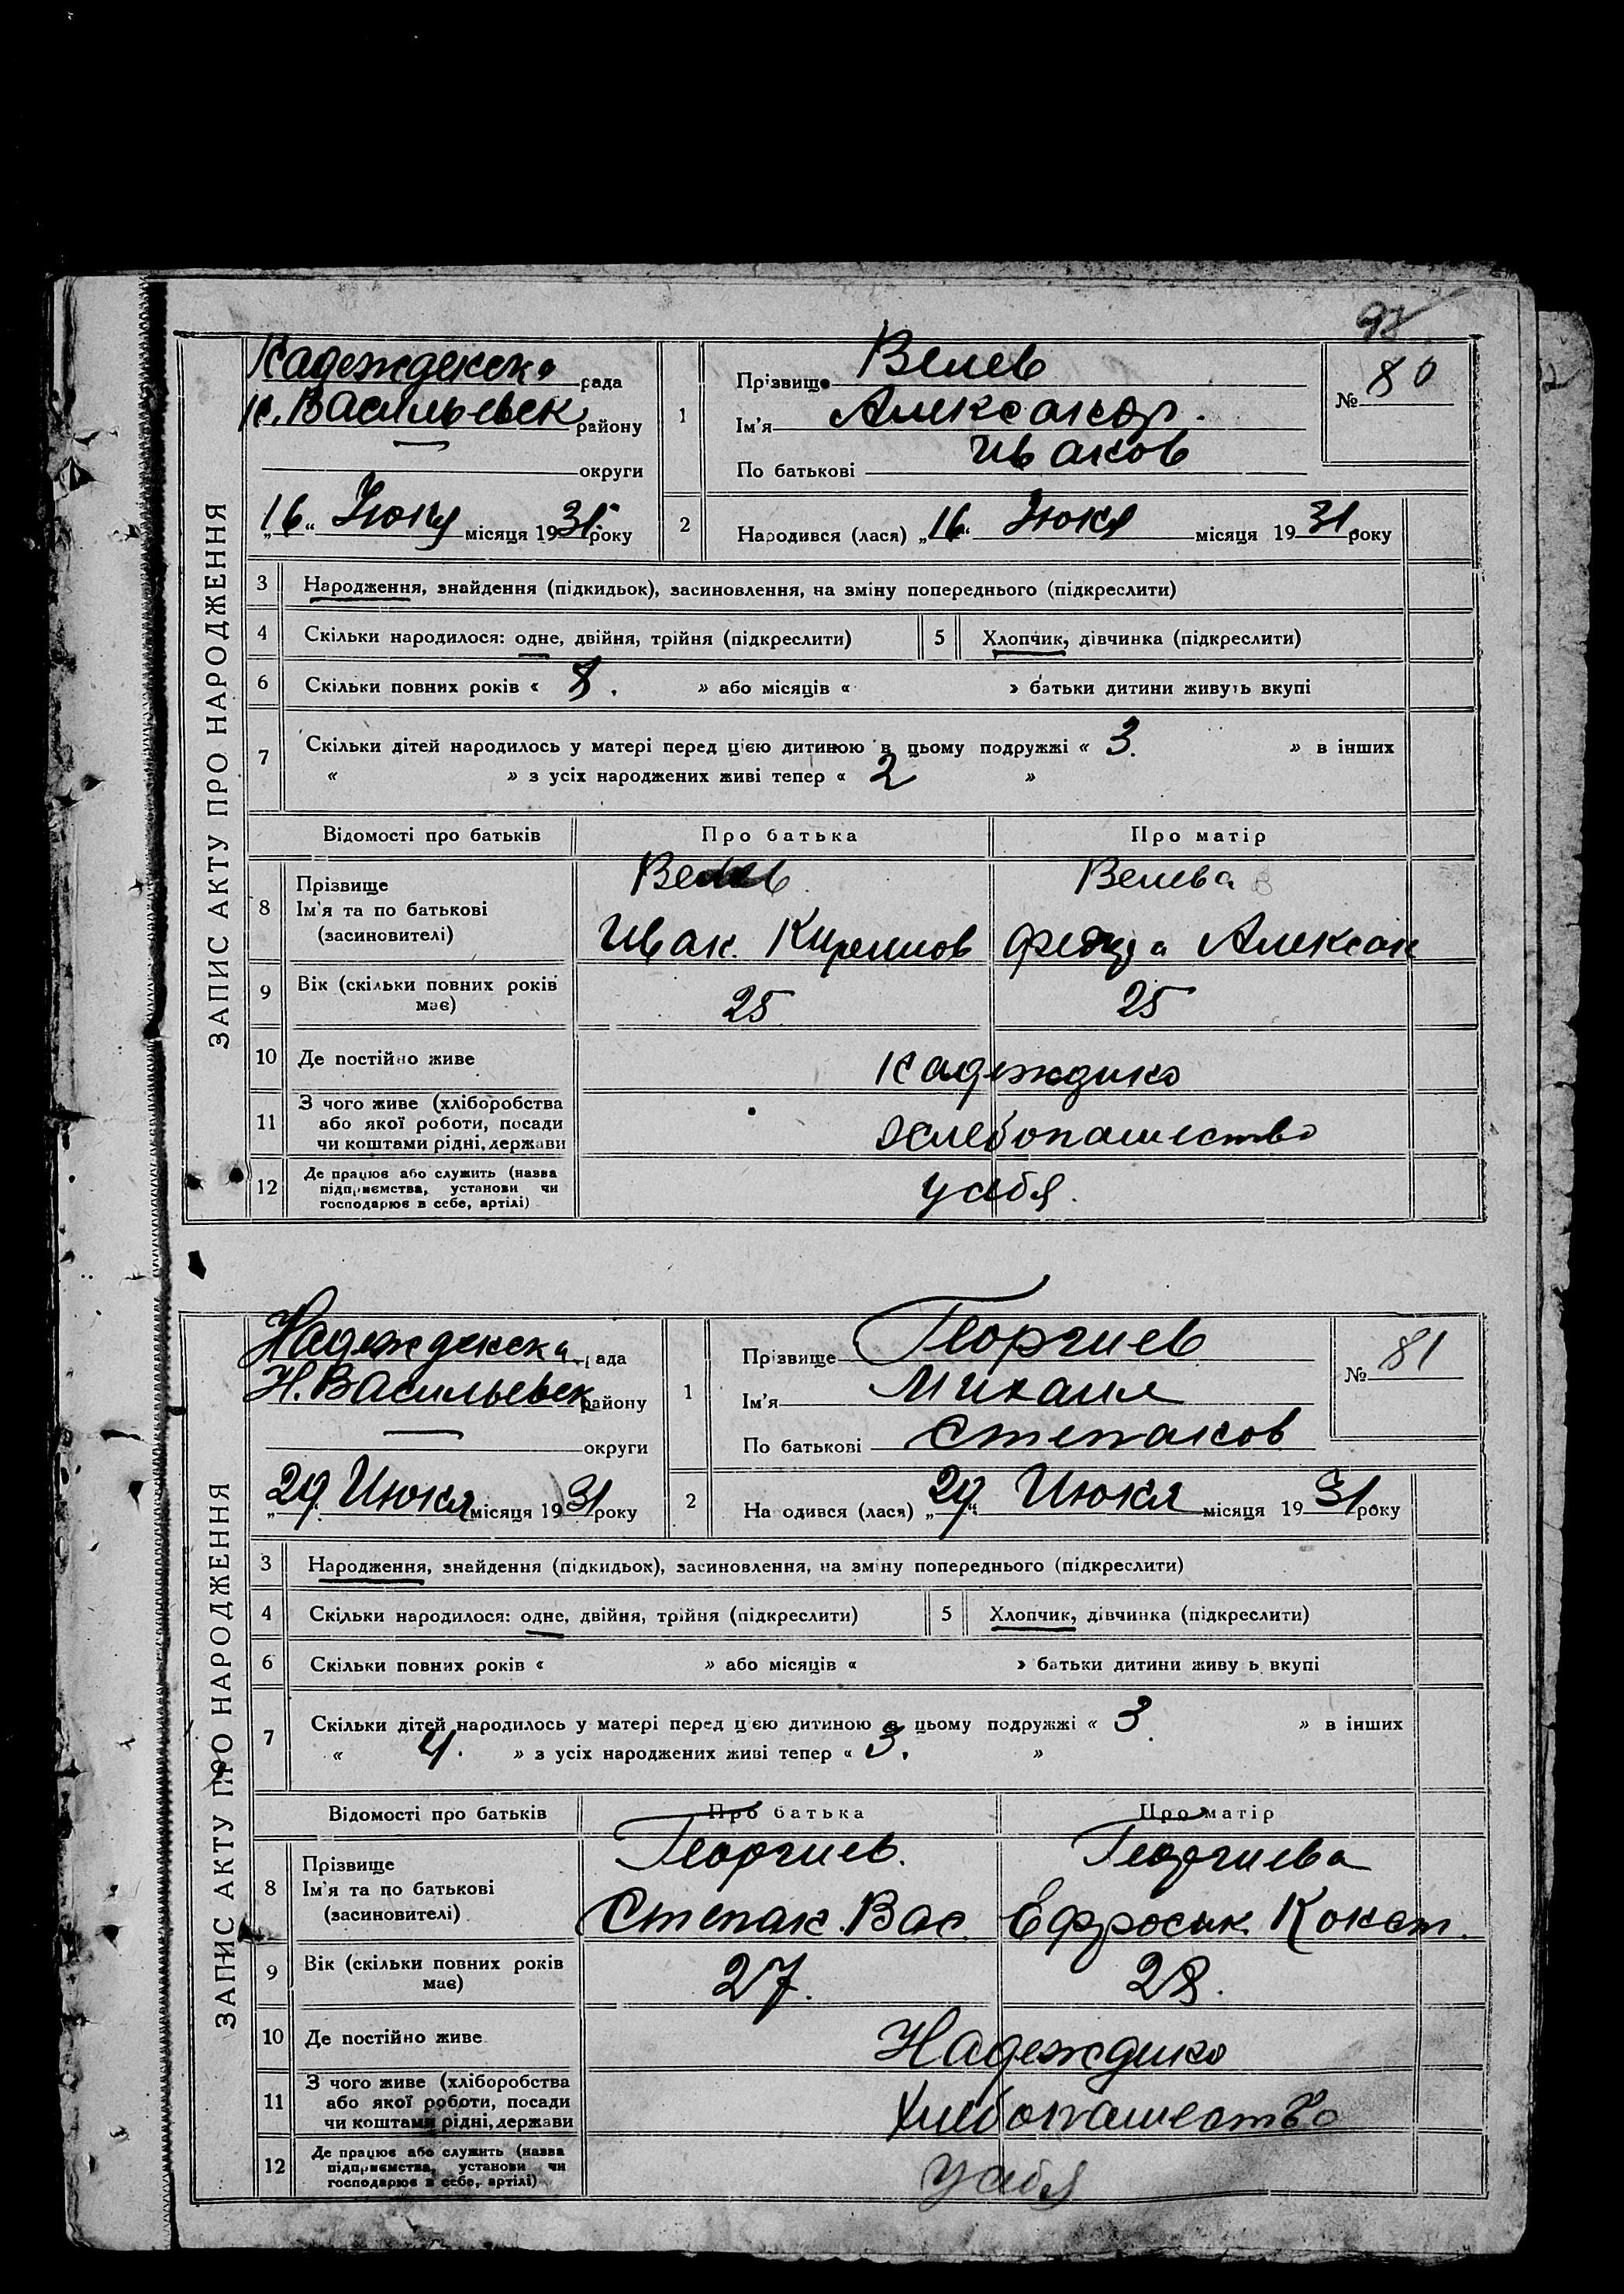 97
ЗАПИС АКТУ ПРО НАРОДЖЕННЯ
Надежденска рада
Н. Васильевск району
— округи
„16“ Июня місяця 1931 року
1 Прізвище Велев
Ім'я Александр.
По батькові Иванов
№ 80
2 Народився (лася) „16“ Июня місяця 1931 року
3 Народження, знайдення (підкидьок), засиновлення, на зміну попереднього (підкреслити)
4 Скільки народилося: одне, двійня, трійня (підкреслити) 5 Хлопчик, дівчинка (підкреслити)
6 Скільки повних років « 8. » або місяців « » батьки дитини живуть вкупі
7 Скільки дітей народилось у матері перед цією дитиною в цьому подружжі « 3. » в інших
« » з усіх народжених живі тепер « 2 »
Відомості про батьків Про батька Про матір
8 Прізвище Велев Велева
Ім'я та по батькові
(засиновителі) Иван. Кирилов Алексан
9 Вік (скільки повних років
має) 25 25
10 Де постійно живе Надеждино
11 З чого живе (хліборобства
або якої роботи, посади
чи коштами рідні, держави Хлебопашество
12 Де працює або служить (назва
підприємства, установи чи
господарює в себе, артілі) у себя.
ЗАПИС АКТУ ПРО НАРОДЖЕННЯ
Надежденска рада
Н. Васильевск району
— округи
„29“ Июня місяця 1931 року
1 Прізвище Георгиев
Ім'я Михаил
По батькові Степанов
№ 81
2 На одився (лася) „29“ Июня місяця 1931 року
3 Народження, знайдення (підкидьок), засиновлення, на зміну попереднього (підкреслити)
4 Скільки народилося: одне, двійня, трійня (підкреслити) 5 Хлопчик, дівчинка (підкреслити)
6 Скільки повних років « » або місяців « » батьки дитини живу ь вкупі
7 Скільки дітей народилось у матері перед цією дитиною в цьому подружжі « 3 » в інших
« 4. » з усіх народжених живі тепер « 3. »
Відомості про батьків Про батька Про матір
8 Прізвище Георгиев. Георгиева
Ім'я та по батькові
(засиновителі) Степан. Вас. Ефросин. Конст.
9 Вік (скільки повних років
має) 27. 28.
10 Де постійно живе Надеждино
11 З чого живе (хліборобства
або якої роботи, посади
чи коштами рідні, держави Хлебопашество
12 Де працює або служить (назва
підприємства, установи чи
господарює в себе, артілі) у себя